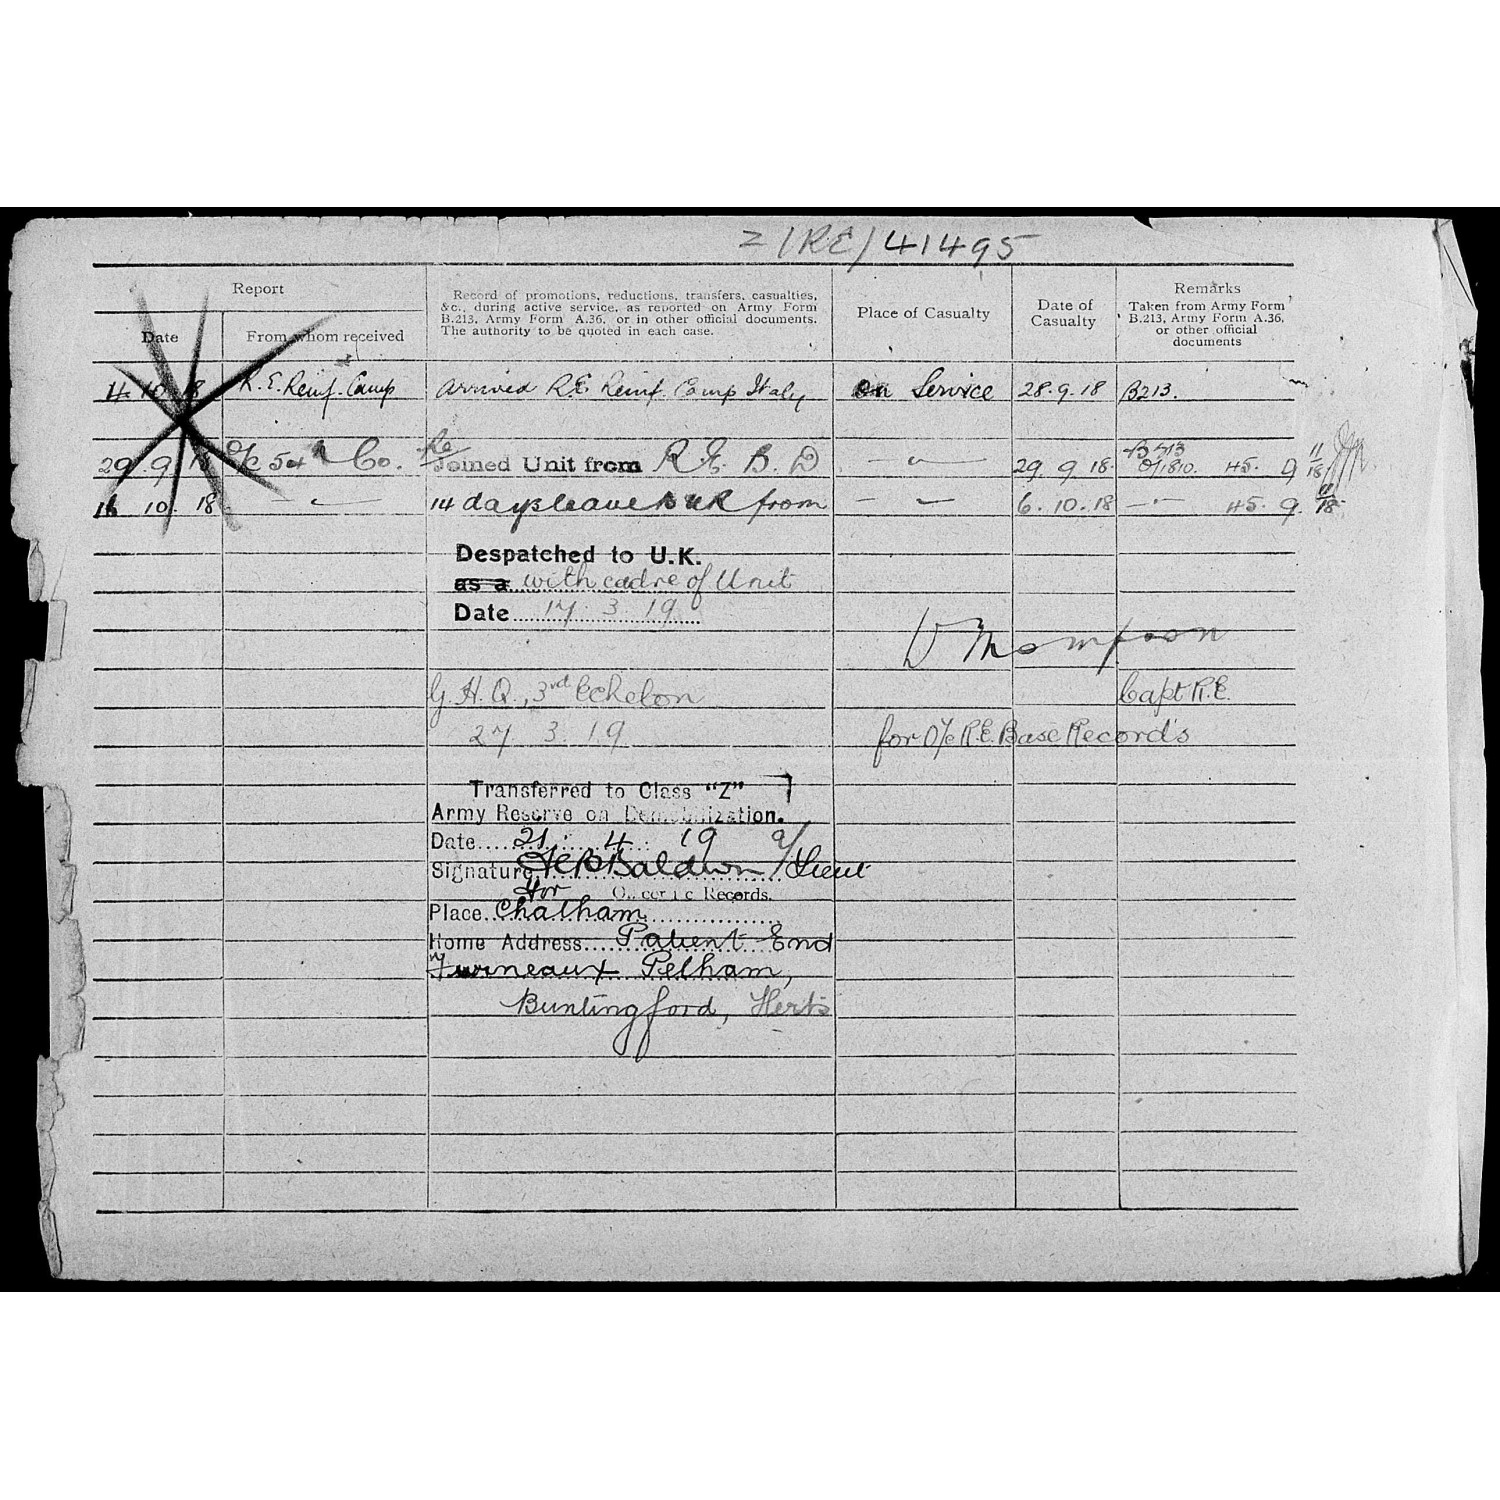 Z/(RE)/41495
Report
Date
From whom received
Record of promotions, reductions, transfers, casualties, &c., during active service, as reported on Army Form B.213, Army Form A.36, or in other official documents. The authority to be quoted in each case.
Place of Casualty
Date of Casualty
Remarks
Taken from Army Form B.213, Army Form A.36, or other official documents
4 10 18 R.E. Reinf. Camp arrived R.E. Reinf. Camp Italy on Service 28.9.18 B213.
29 9 18 O/C 54th Co. Re Joined Unit from R.E. B. D — " — 29 9 18. B 213 O/1810. 45. 9 11/18
16 10 18 — " — 14 days leave to UK from — " — 6.10.18 — " — 45. 9. 11/18.
Despatched to U.K.
as a with cadre of Unit
Date 17 3 19
Thompson
G.H.Q., 3rd Echelon Capt R.E.
27 3 19 for O/c R.E. Base Records
Transferred to Class "Z"
Army Reserve on Demobilization.
Date 21. 4 19
Signature Baldwin a/Lieut
for Officer i/c Records.
Place Chatham
Home Address Patient End
Furneaux Pelham,
Buntingford, Herts